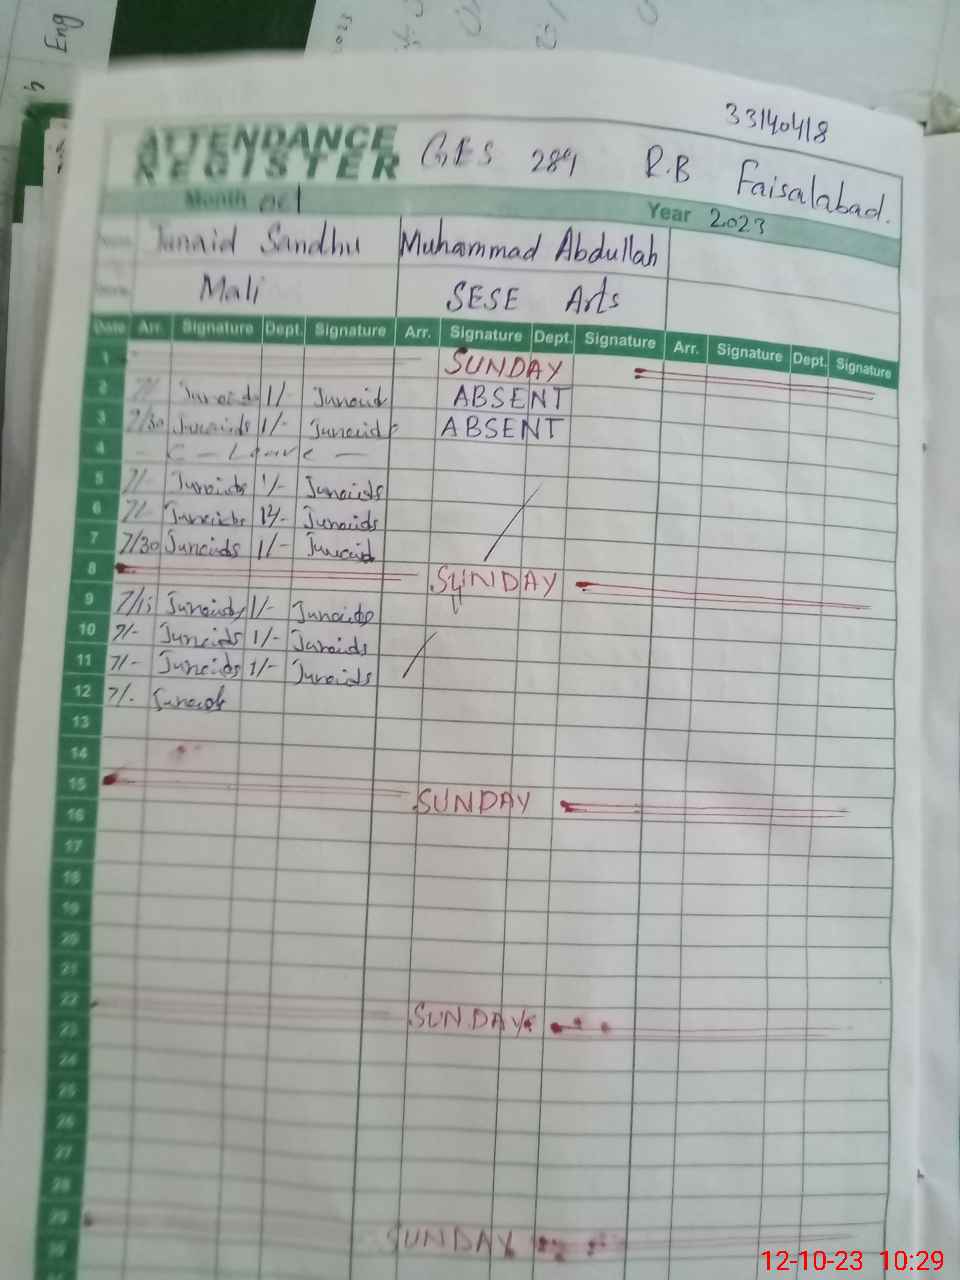 Eng
33140418
ATTENDANCE REGISTER GES 289 R.B Faisalabad.
Month oct Year 2023
Name Junaid Sandhu Muhammad Abdullah
Mali SESE Arts
Date Arr. Signature Dept. Signature Arr. Signature Dept. Signature Arr. Signature Dept. Signature
1 SUNDAY
2 7/- Junaids 1/- Junaid ABSENT
3 7/30 Junaids 1/- Junaids ABSENT
4 - C - Leave -
5 7/- Junaids 1/- Junaids
6 7/- Junaids 12/- Junaids
7 7/30 Junaids 1/- Junaid
8 SUNDAY
9 7/15 Junaids 1/- Junaids
10 7/- Junaids 1/- Junaids
11 7/- Junaids 1/- Junaids
12 7/- Junaids
13
14
15 SUNDAY
16
17
18
19
20
21
22 SUNDAY
23
24
25
26
27
28
29 SUNDAY
30
12-10-23 10:29